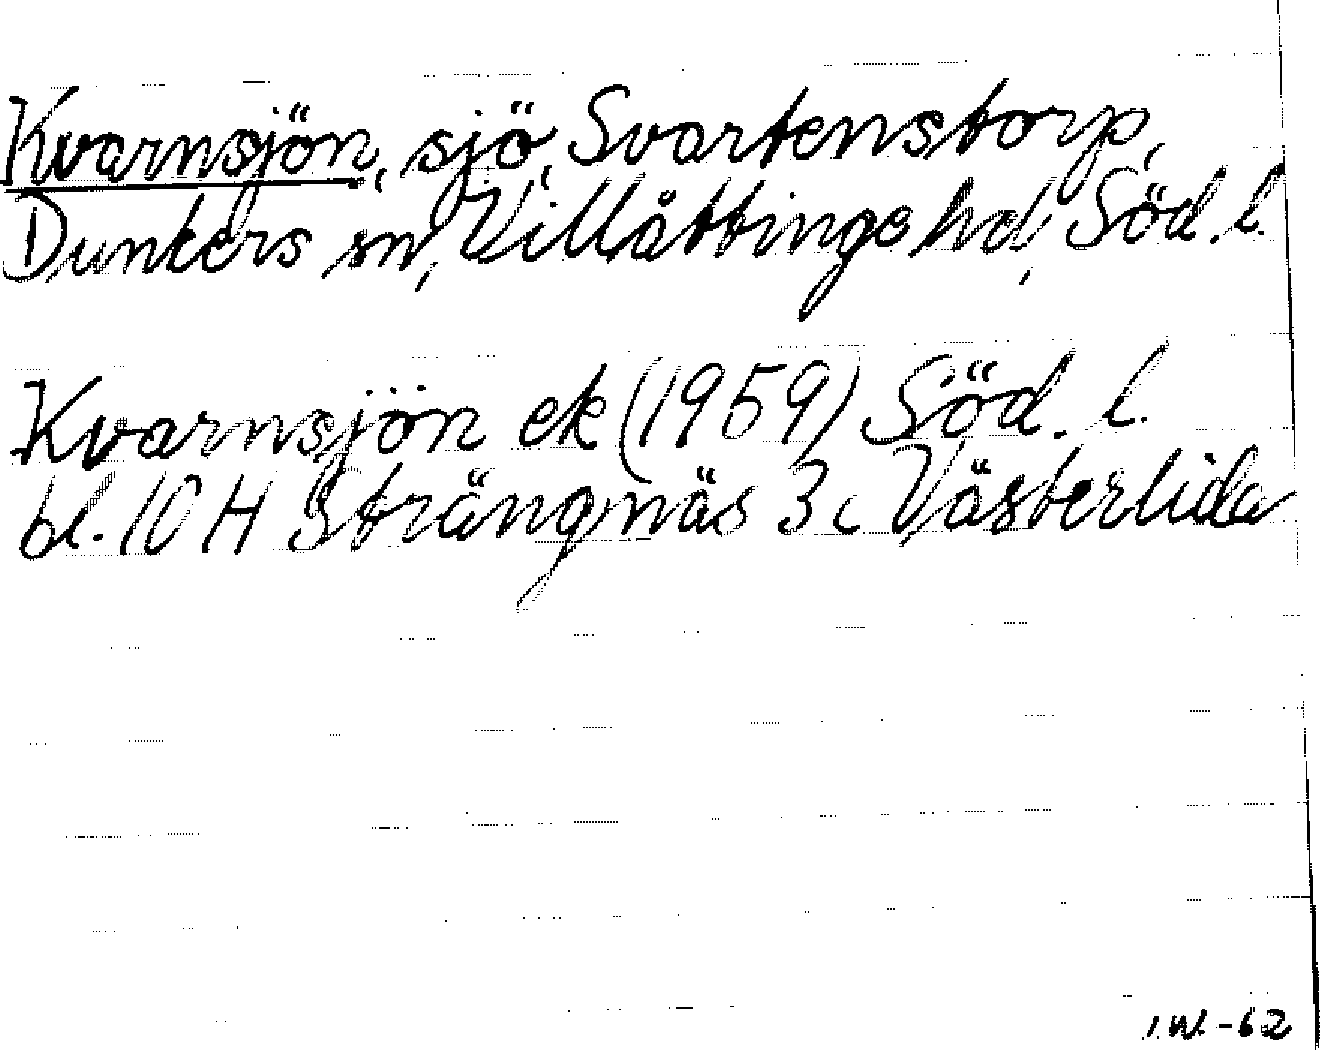 Kvarnsjön, sjö, Svartenstorp,
Dunkers sn, Villåttinge hd, Söd. l.
Kvarnsjön ek (1959) Söd. l.
bl. 10 H Strängnäs 3c Västerlida
I.W. -62